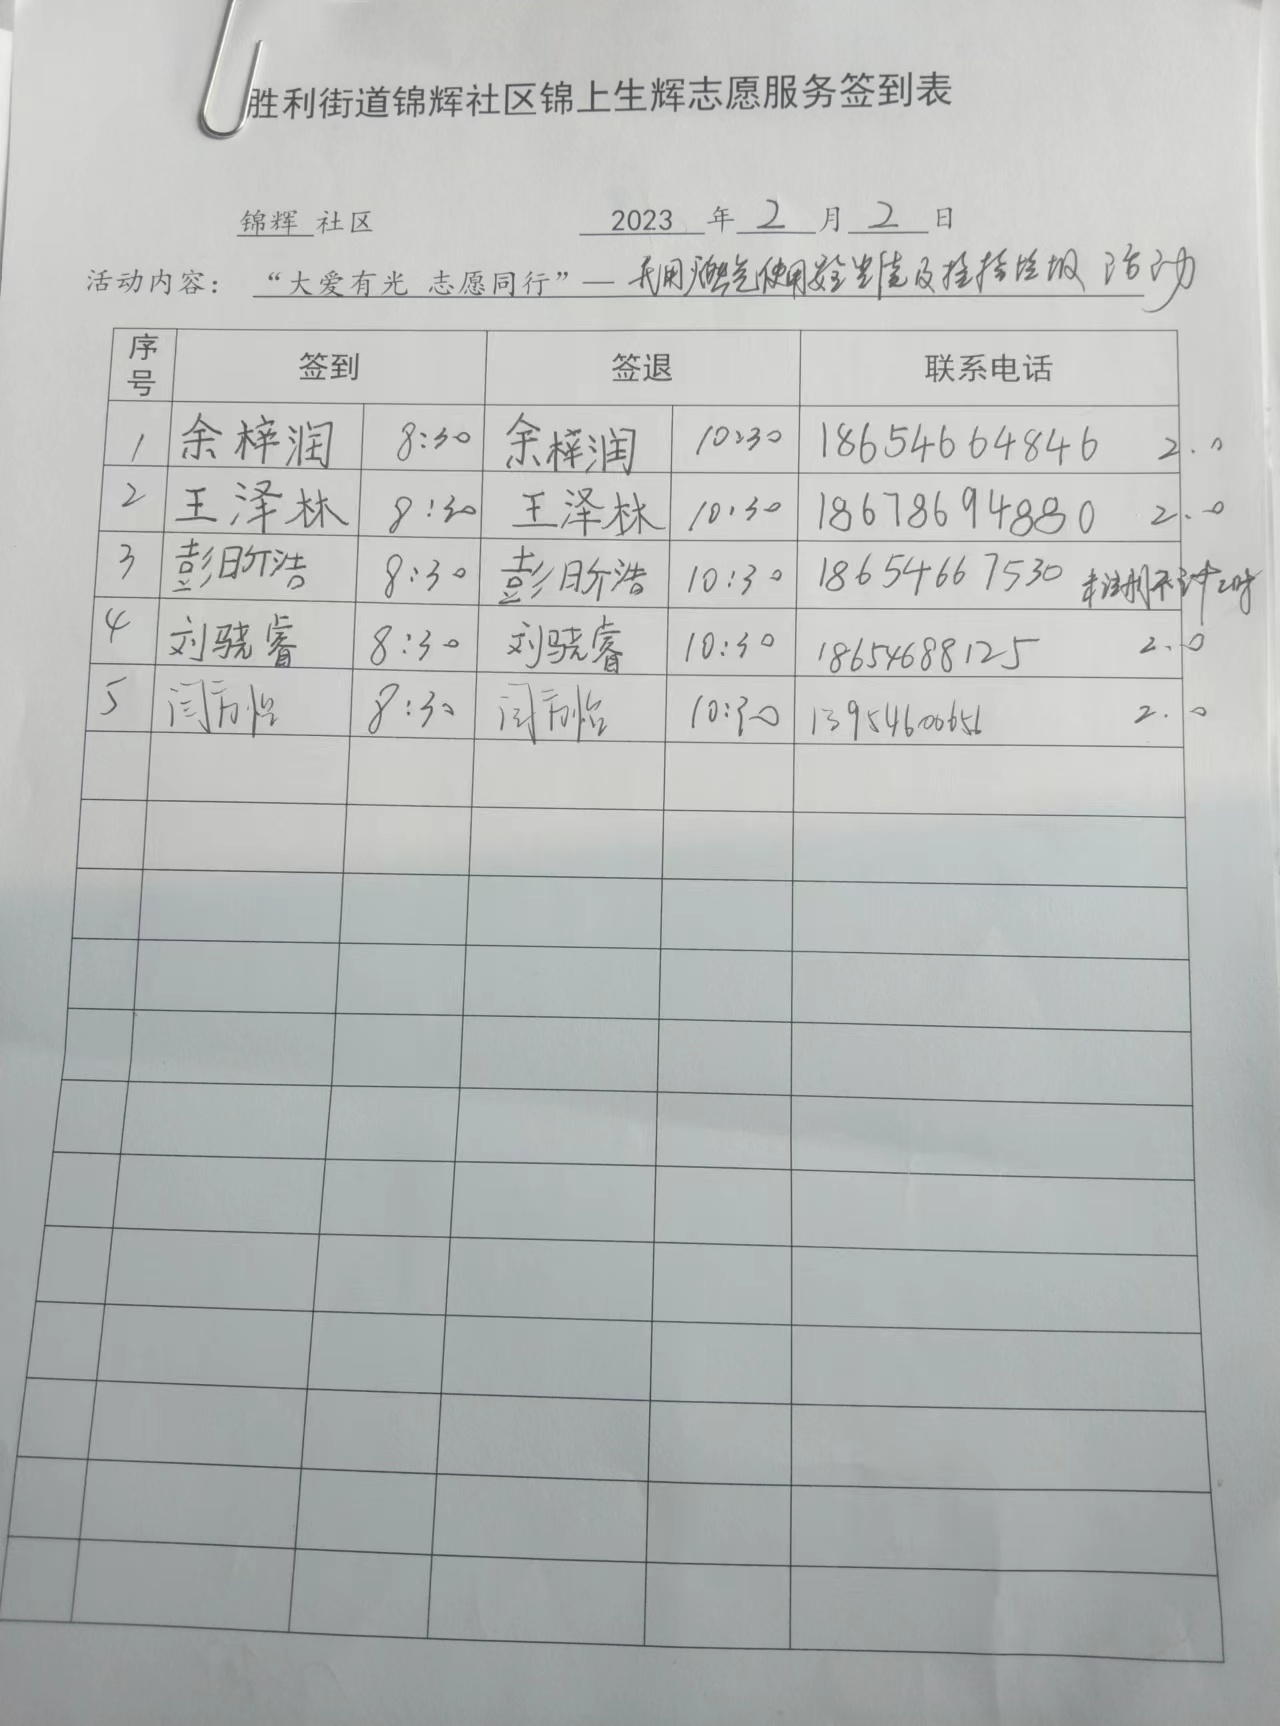 胜利街道锦辉社区锦上生辉志愿服务签到表
锦辉 社区 2023 年 2 月 2 日
活动内容：“大爱有光 志愿同行”— 民用燃气使用安全 及捡拾垃圾 活动
序号 签到 签退 联系电话
1 余梓润 8:30 余梓润 10:30 18654664846 2.0
2 王泽林 8:30 王泽林 10:30 18678694880 2.0
3 彭昕浩 8:30 彭昕浩 10:30 18654667530 未注册不计
4 刘骁睿 8:30 刘骁睿 10:30 18654688125 2.0
5 闫 怡 8:30 闫 怡 10:30 13954600656 2.0